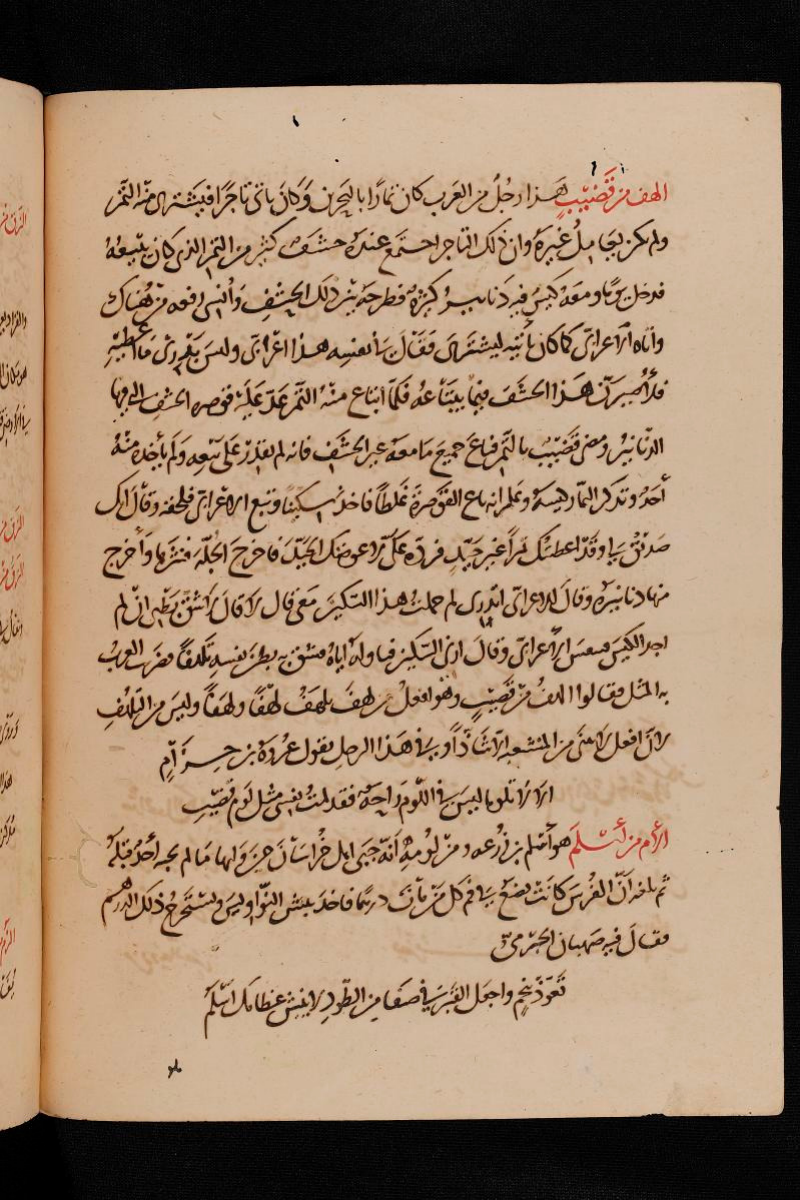 الهف من قَضِيْبٍ هَذا رجُلٌ من العَرب كان تمّارًا بالبَحرين وَكَانَ ياتى تاجَرًا فيَشترى منه التَّمْر
ولم يكن يعَامِلُ غَيرهُ وان ذلك التاجر اجتمَع عندهُ حشَفٌ كثير من التمر الذى كان يبيعهُ
فدخل يومًا ومعَهُ كيسٌ فيه دَنانير كثيرة فطرحهُ بين ذلك الحشفِ وأنسى رفعه من هُناك
وأتاه الاعرابى كما كان يأتيه ليشترى فقَالَ فى نفسِه هذا اعرابى وليس يَدرى مَا أعطيه
فلأُصيرنّ هَذا الحشَفَ فيما يبتَاعهُ فلمّا ابتاع منهُ التّمر عدّ عليه قوصره الحشف التى فيها
الدّنانير ومضى قَضيبٌ بالتّمر فباعَ جميعَ مَا معهُ غير الحشَف فانه لم يقدِرْ عَلى بيعه ولَم يأخذه منْهُ
أحدٌ وتذكر التمّار كيسهُ وعلم انه باع القَوصرَةَ غَلطًا فاخذ سِكينًا وتبع الاعرابىّ فلحقه وقال انك
صَديقٌ لى وقَدْ اعطيتُك تمرًا غير جيّدٍ فردّه علَىّ لاعوضك الجيّدَ فاخرجَ الجلّة فنثرها وَأخرج
منها دنانيرَهُ وقالَ للاعرابى اتدرِى لم حملتُ هذا السّكينَ مَعى قال لا قالَ لاشقّ بَطنى ان لم
اجد الكيسَ فتنفسَ الأعرابى وقَالَ ارنى السّكين فناوله اياهُ فشقَّ به بطنَ نفسِه تلهفًا فضربت العربُ
به المثل فقالوا الهفُ من قَضِيْبٍ وهو افعلُ من لهفَ يلهَفُ لهفًا ولهفًا وليس من التلهّفِ
لانّ افعل لا يبنى من المنشعبة الا شَاذًّا وفى هَذا الرجل يقول عُروة بن حِزَامٍ
الا لا تلوما ليس فى اللّوم رَاحةٌ فقد لمتُ نفسى مثل لَوم قَضِيْبِ
الأم من أسْلَمَ هو أسْلم بن زُرعه ومن لؤمه انّه جبَى اهل خُراسَان حينَ وَليها مَا لم يجبه أحدٌ قبلَهُ
ثم بلغه انّ الفُرس كانَتْ تضعُ فى فم كل مَنْ ماتَ درهمًا فاخذ ينبش النّواويسَ وليستَخرجُ ذلك الدرهم
فقالَ فيه صهبان الجَرمىّ
تَعوّذ بنجمٍ واجعل القَبرَ فى صَفَا من الطّودِ لا ينبش عظامَك اسْلمُ